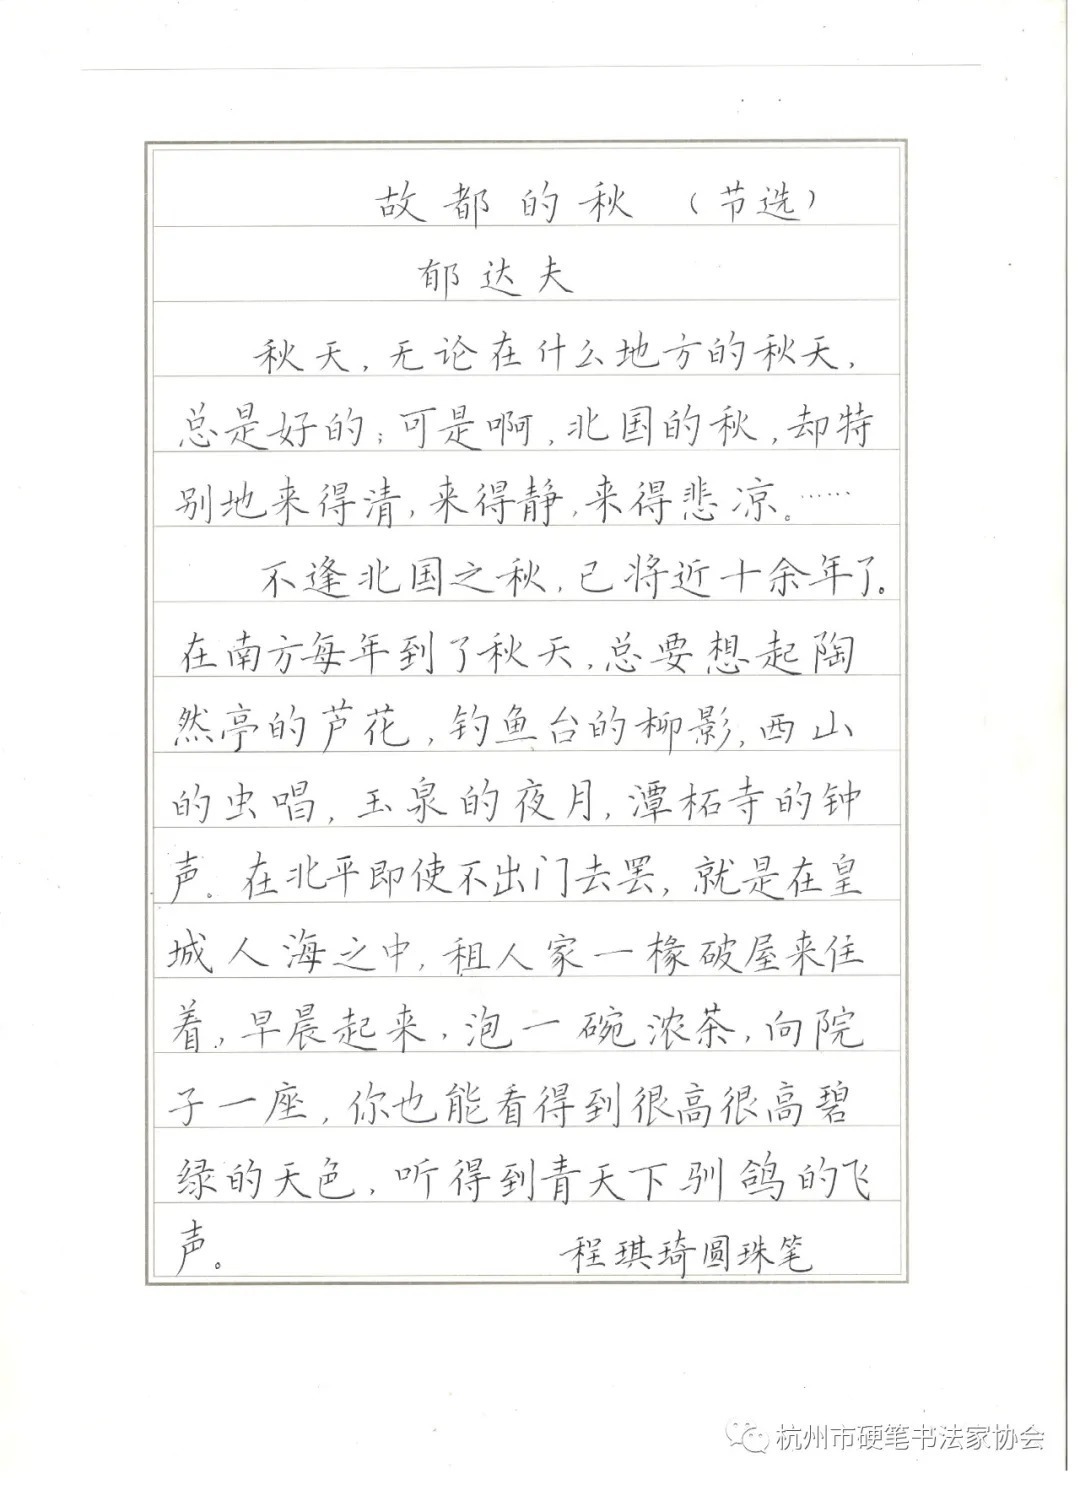 故都的秋（节选）
郁达夫
秋天，无论在什么地方的秋天，
总是好的；可是啊，北国的秋，却特
别地来得清，来得静，来得悲凉。……
不逢北国之秋，已将近十余年了。
在南方每年到了秋天，总要想起陶
然亭的芦花，钓鱼台的柳影，西山
的虫唱，玉泉的夜月，潭柘寺的钟
声。在北平即使不出门去罢，就是在皇
城人海之中，租人家一椽破屋来住
着，早晨起来，泡一碗浓茶，向院
子一座，你也能看得到很高很高碧
绿的天色，听得到青天下驯鸽的飞
声。
程琪琦圆珠笔
杭州市硬笔书法家协会